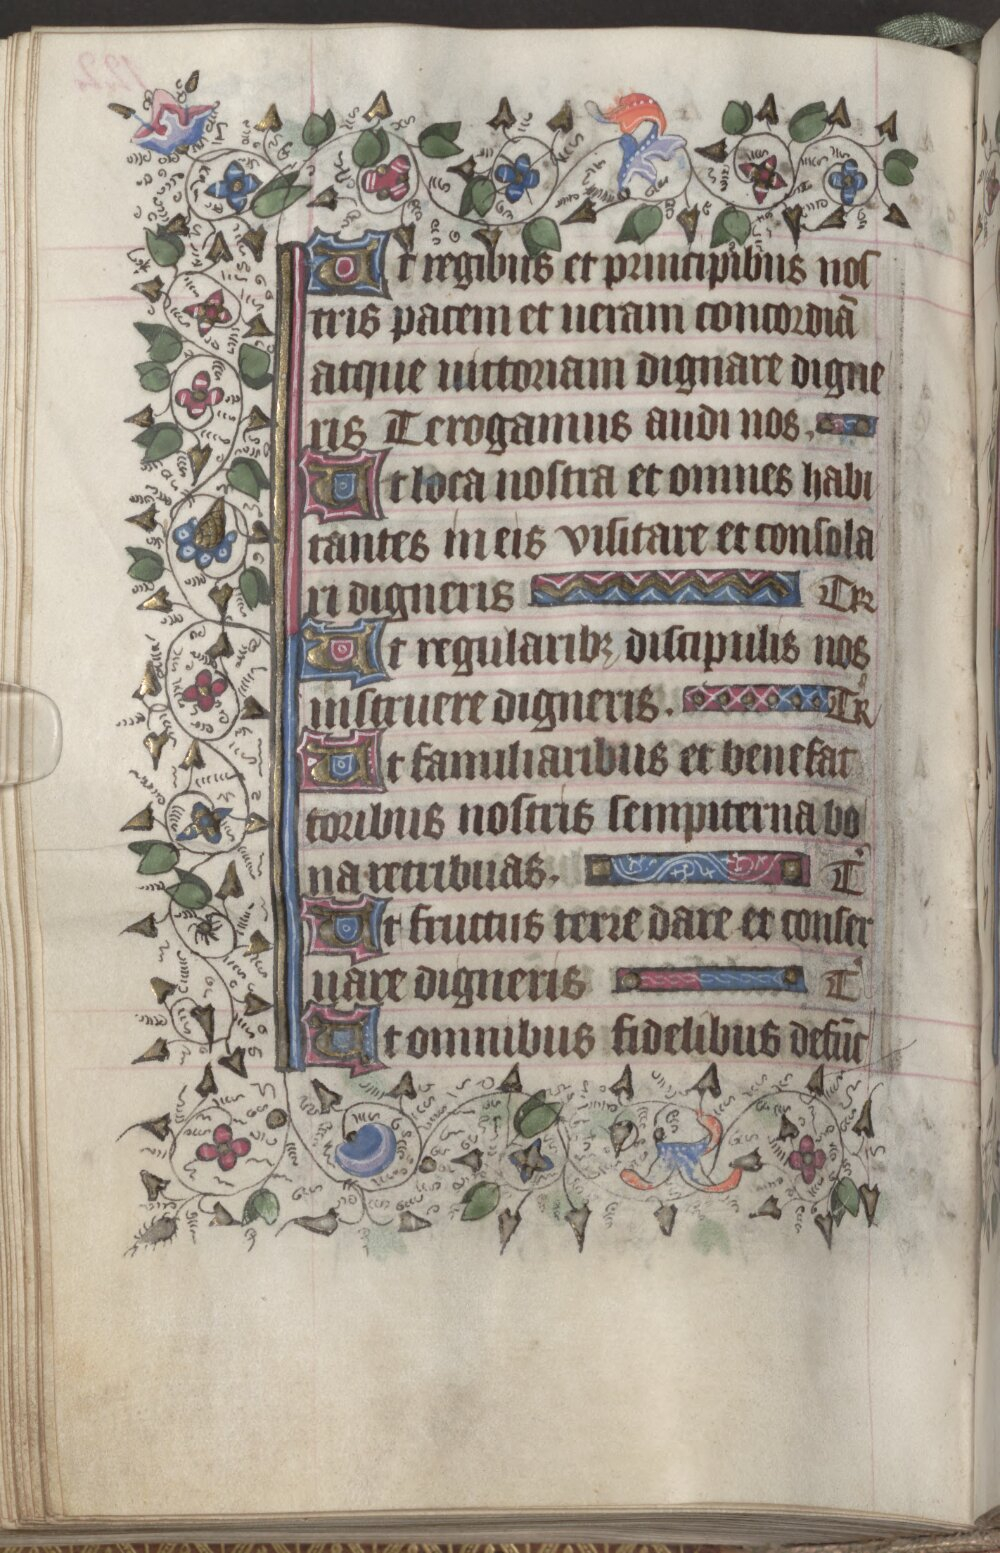 Ut regibus et principibus nos
tris pacem et ueram concordiã
atque uictoriam dignare digne
ris Te rogamus audi nos.
Ut loca nostra et omnes habi
tantes in eis visitare et consola
ri digneris TR
Ut regularibꝫ discipulis nos
instruere digneris. TR
Ut familiaribus et benefac
toribus nostris sempiterna bo
na retribuas. T
Ut fructus terre dare et conser
uare digneris T
Ut omnibus fidelibus defũc